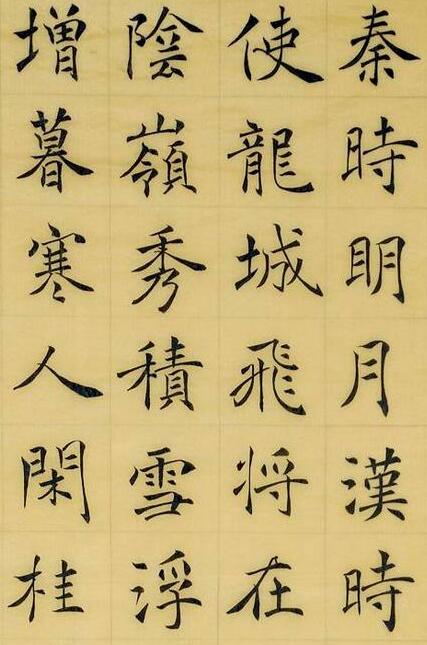 秦時明月漢時
使龍城飛将在
陰嶺秀積雪浮
增暮寒人閑桂